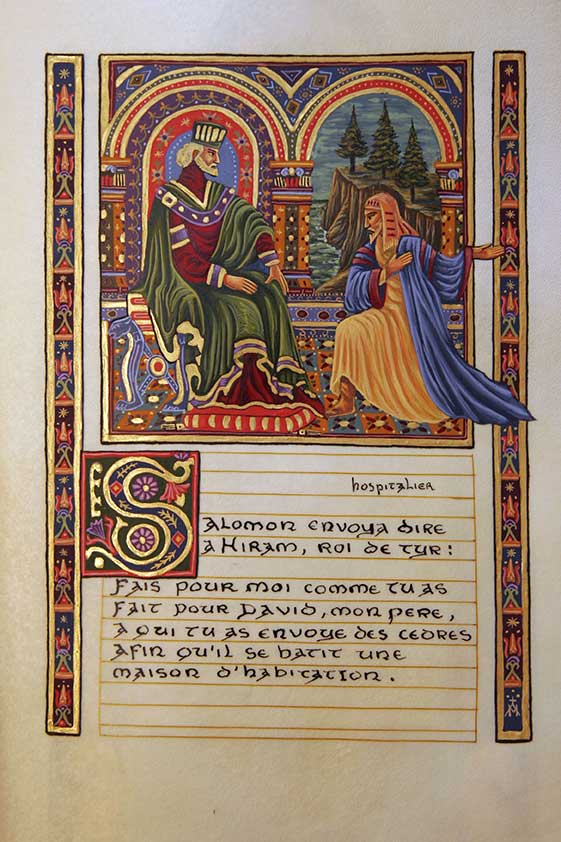 hospitalier
Salomon envoya dire
a Hiram, roi de tyr:
Fais pour moi comme tu as
fait pour David, mon pere,
a qui tu as envoye des cedres
afin qu'il se batit une
maison d'habitation.